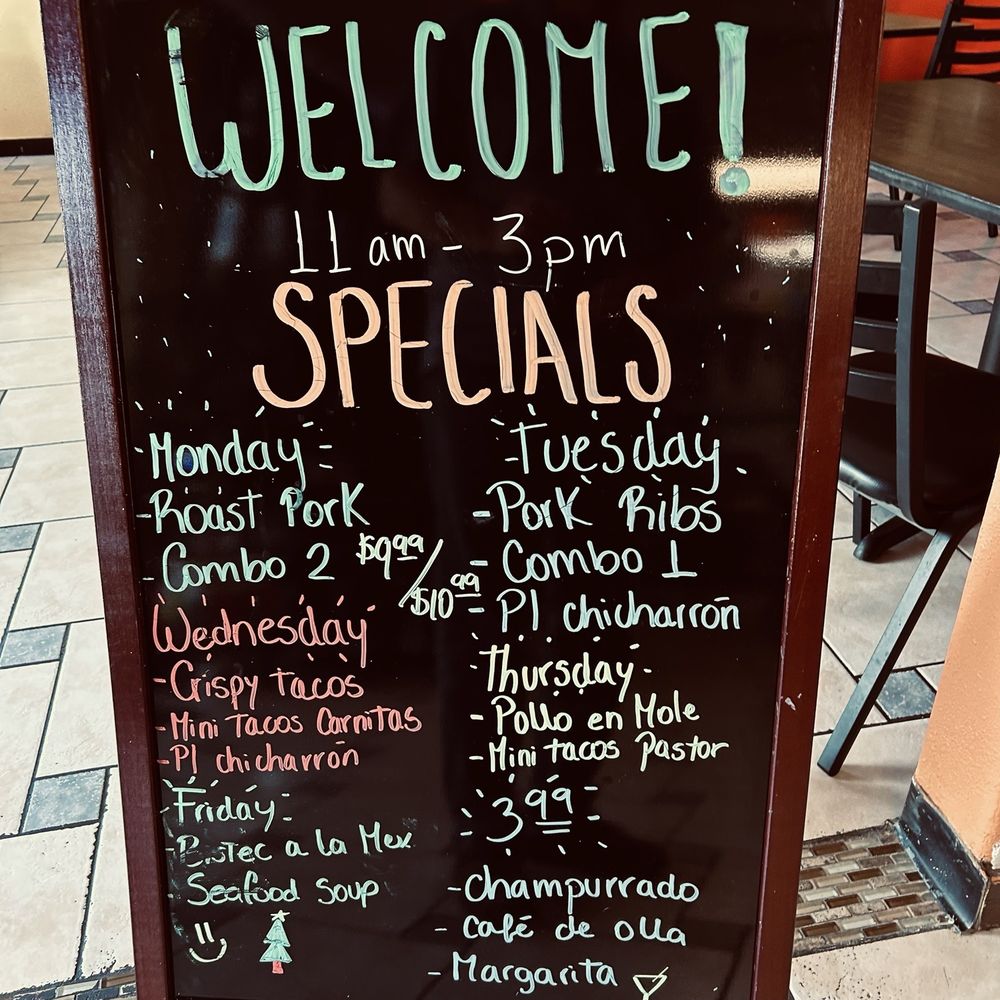 WELCOME!
11 am - 3 pm
SPECIALS
Monday
-Roast Pork
-Combo 2
$9.99/$10.99
Tuesday
-Pork Ribs
-Combo 1
-Pl chicharrón
Wednesday
-Crispy tacos
-Mini Tacos Carnitas
-Pl chicharrón
Thursday
-Pollo en Mole
-Mini tacos Pastor
Friday
-Bistec a la Mex
Seafood soup
3.99
-Champurrado
-Café de olla
-Margarita